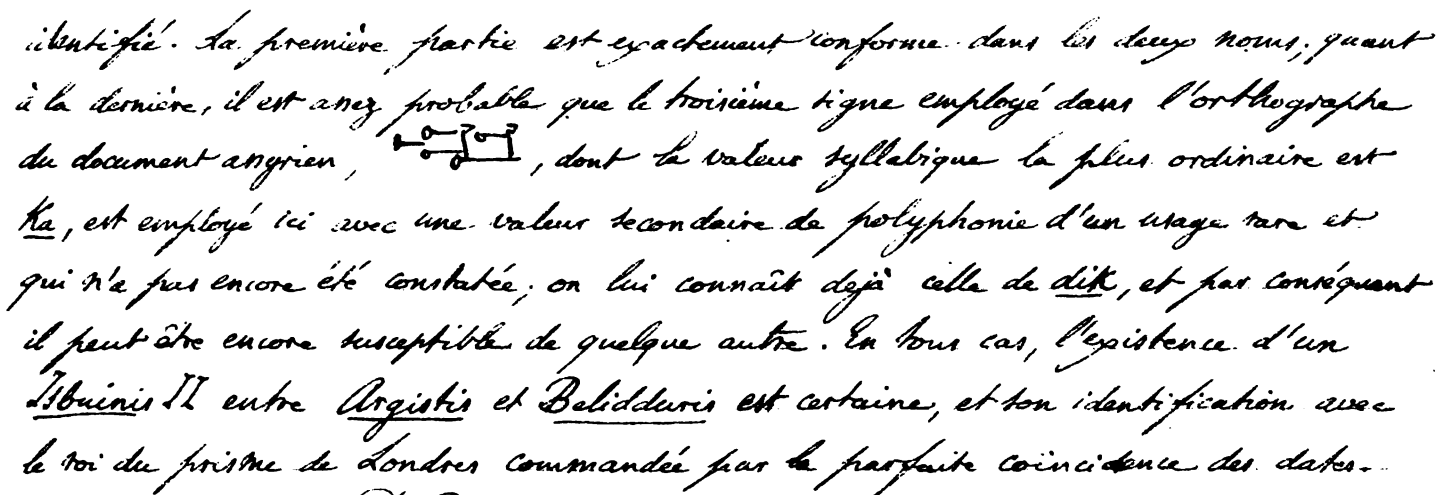 identifié. La première partie est exactement conforme dans les deux noms; quant
à la dernière, il est assez probable que le troisième signe employé dans l'orthographe
du document assyrien, , dont la valeur syllabique la plus ordinaire est
Ka, est employé ici avec une valeur secondaire de polyphonie d'un usage rare et
qui n'a pas encore été constatée; on lui connaît dejà celle de dik, et par conséquent
il peut être encore susceptible de quelque autre. En tous cas, l'existence d'un
Isbuinis II entre Argistis et Belidduris est certaine, et son identification avec
le roi du prisme de Londres commandée par la parfaite coincidence des dates.